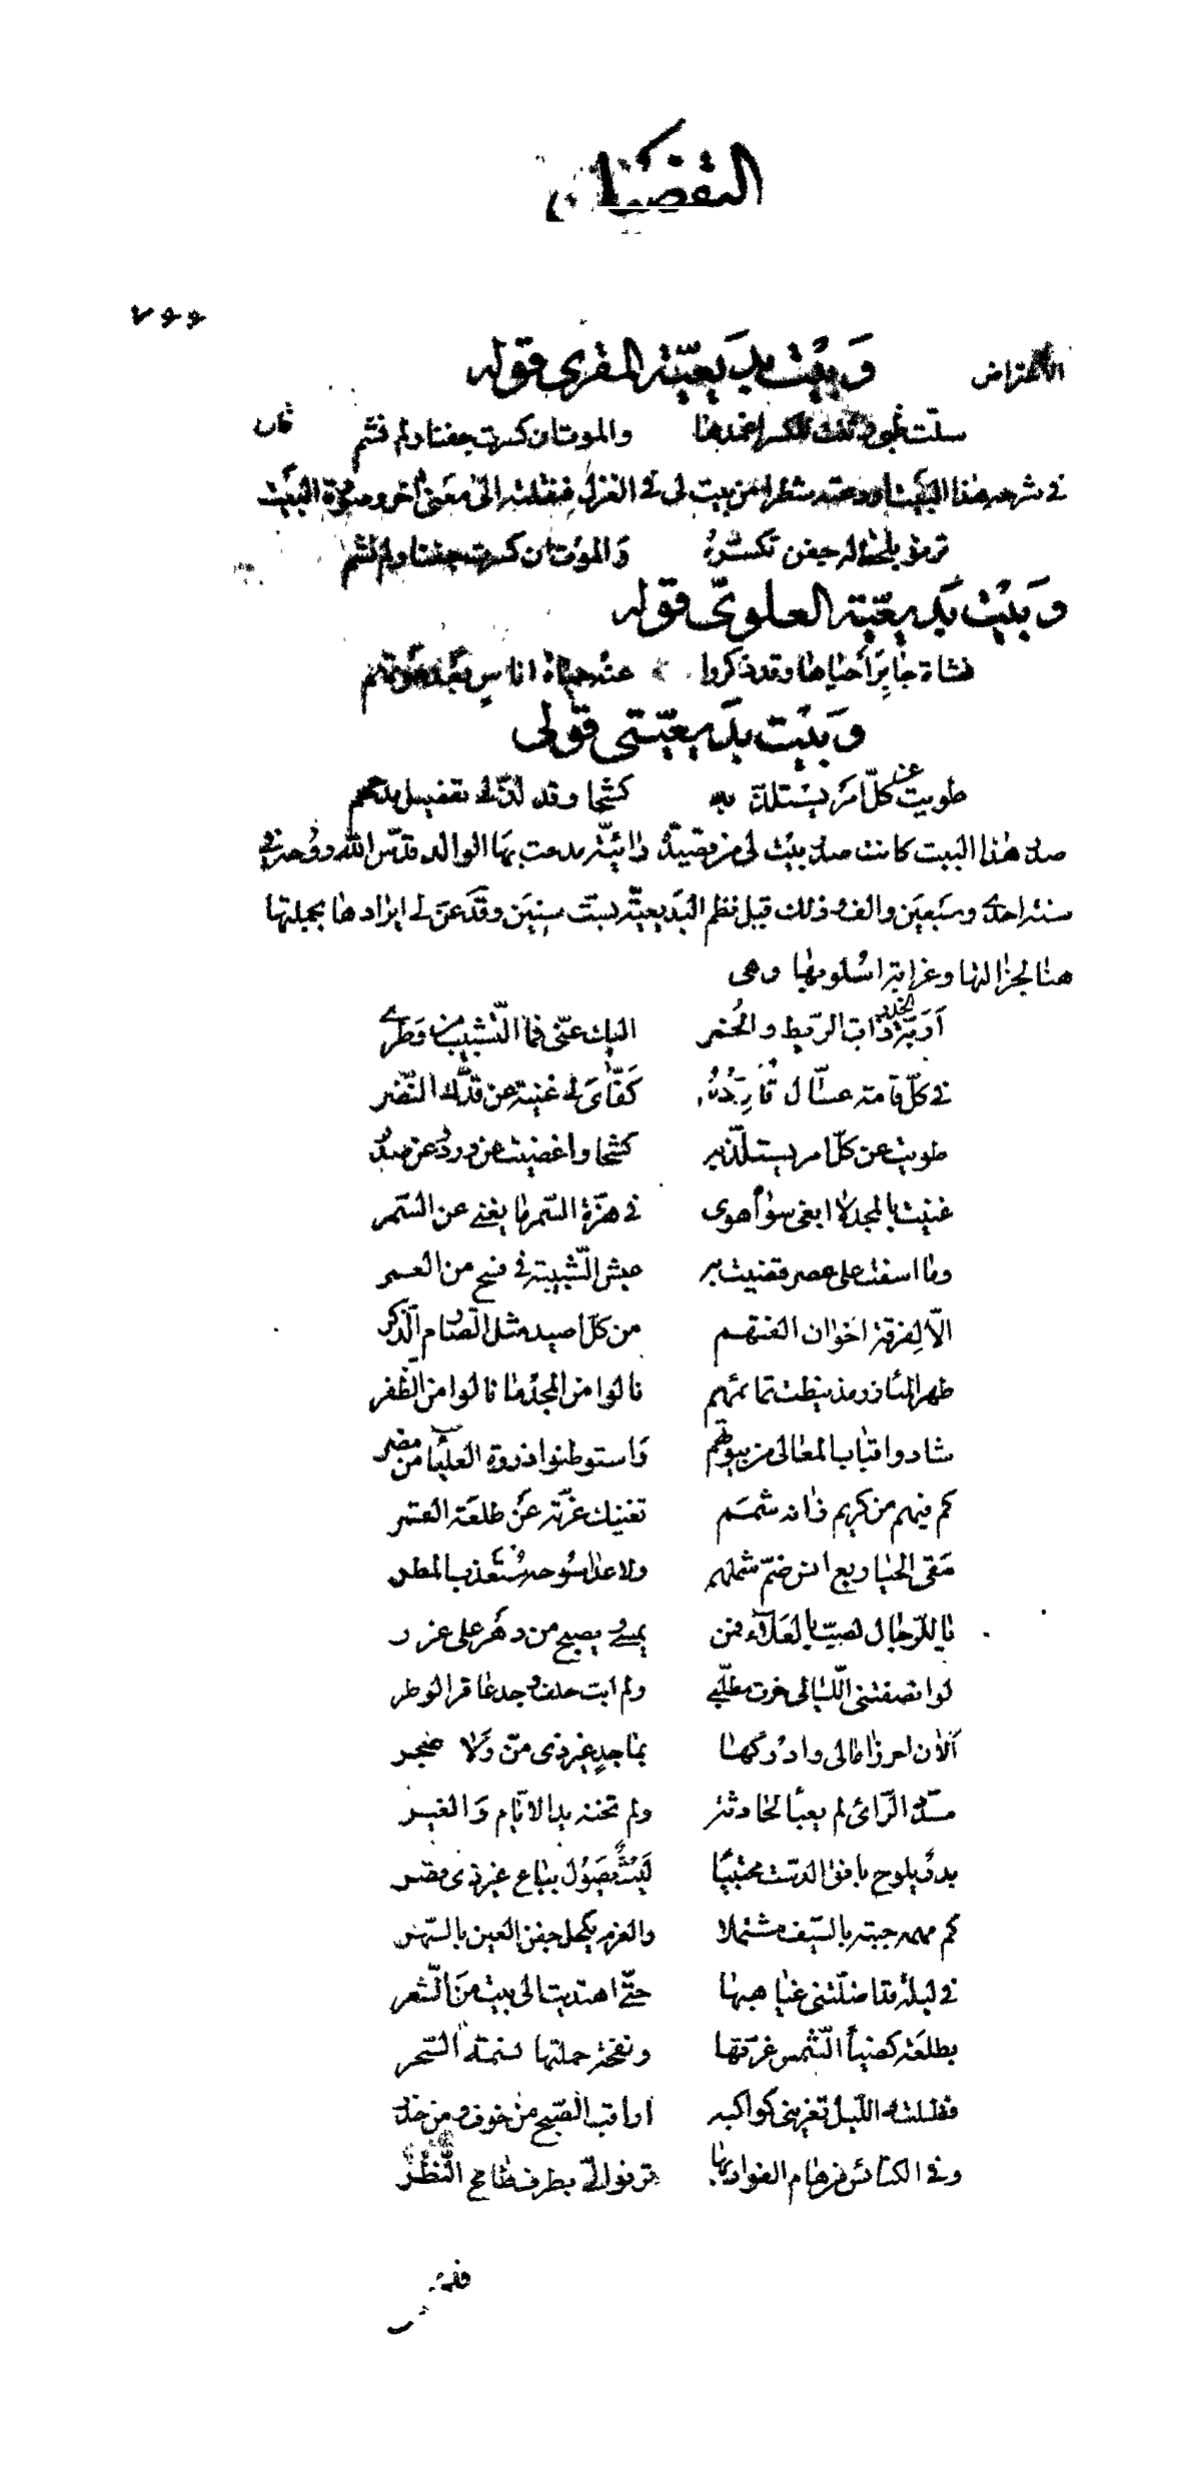 التفضيل
٧٦٦
وبيت بديعية المقرى قوله
سلت والموت ان كسرت جفنا ولم قال
فى شرحه هذا البيت اودعته شطرا من بيت لى فى الغزل فنقلته الى معنى اخر وصورة البيت
ترنو بلحظ له جفن تكسره والموت ان كسرت جفنا ولم
وبيت بديعية العلوى قوله
فشاة جابر أحياها وقد ذكروا عنه حياة اناس بعد موتهم
وبيت بديعيتى قولى
طويت عن كل امر يستلذ به كشحا وقد لذ لى تفضيل مدحهم
صدر هذا البيت كانت صدر بيت لى من قصيدة رائية مدحت بها الوالد قدس الله روحه فى
سنة احدى وسبعين والف وذلك قبل نظم البديعية بست سنين وقد عن لى ايرادها بجملتها
هنا لجزالتها وغرابة اسلوبها وهى
أربة الخدر ذات الريط والخمر اليك عنى فما التشبيب من وطرى
فى كل قامة عسال كفاى لى غنية عن قدك النضر
طويت عن كل امر يستلذ به كشحا واغضيت عن ورد وعن صدر
غنيت بالمجد لا ابغى سواه هوى فى هزة السمر ما يغنى عن السمر
وما اسفت على عصر قضيت به عيش الشبيبة فى فسح من العمر
الا لفرقة اخوان الفتهم من كل اصيد مثل الصارم الذكر
طهر المآزر مذ نيطت تمائمهم نالوا من المجد ما نالوا من الظفر
شادوا قباب المعالى من بيوتهم واستوطنوا ذروة العلياء من مضر
كم فيهم من كريم زانه شمم تغنيك غرته عن طلعة القمر
سقى الحيا ربع انس ضم شملهم ولا عدا سوحه مستعذب المطر
يا للرجال لصب بالعلاء فتن يمسى ويصبح من دهر على غرر
لو انصفتنى الليالى حزت مطلبى ولم ابت حلف وجد عاقر الوطر
الان احرز امالى وادركها بماجد غير ذى من ولا ضجر
مسدد الرائ لم يعبأ لحادثة ولم تخنه يد الايام والغير
بدر يلوح بافق الدست محتبيا ليث يصول بباع غير ذى قصر
كم مهمه جبته بالسيف مشتملا والعزم يكحل جفن العين بالسهر
فى ليلة قد اضلتنى غياهبها حتى اهتديت الى بيت من الشعر
بطلعة كضياء الشمس غرتها ونفحة حملتها نسمة السحر
فظلت والليل تغرينى كواكبه اراقب الصبح من خوف ومن حذر
وفى الكنائس من هام الفؤاد بها ترنو الى بطرف طامح النظر